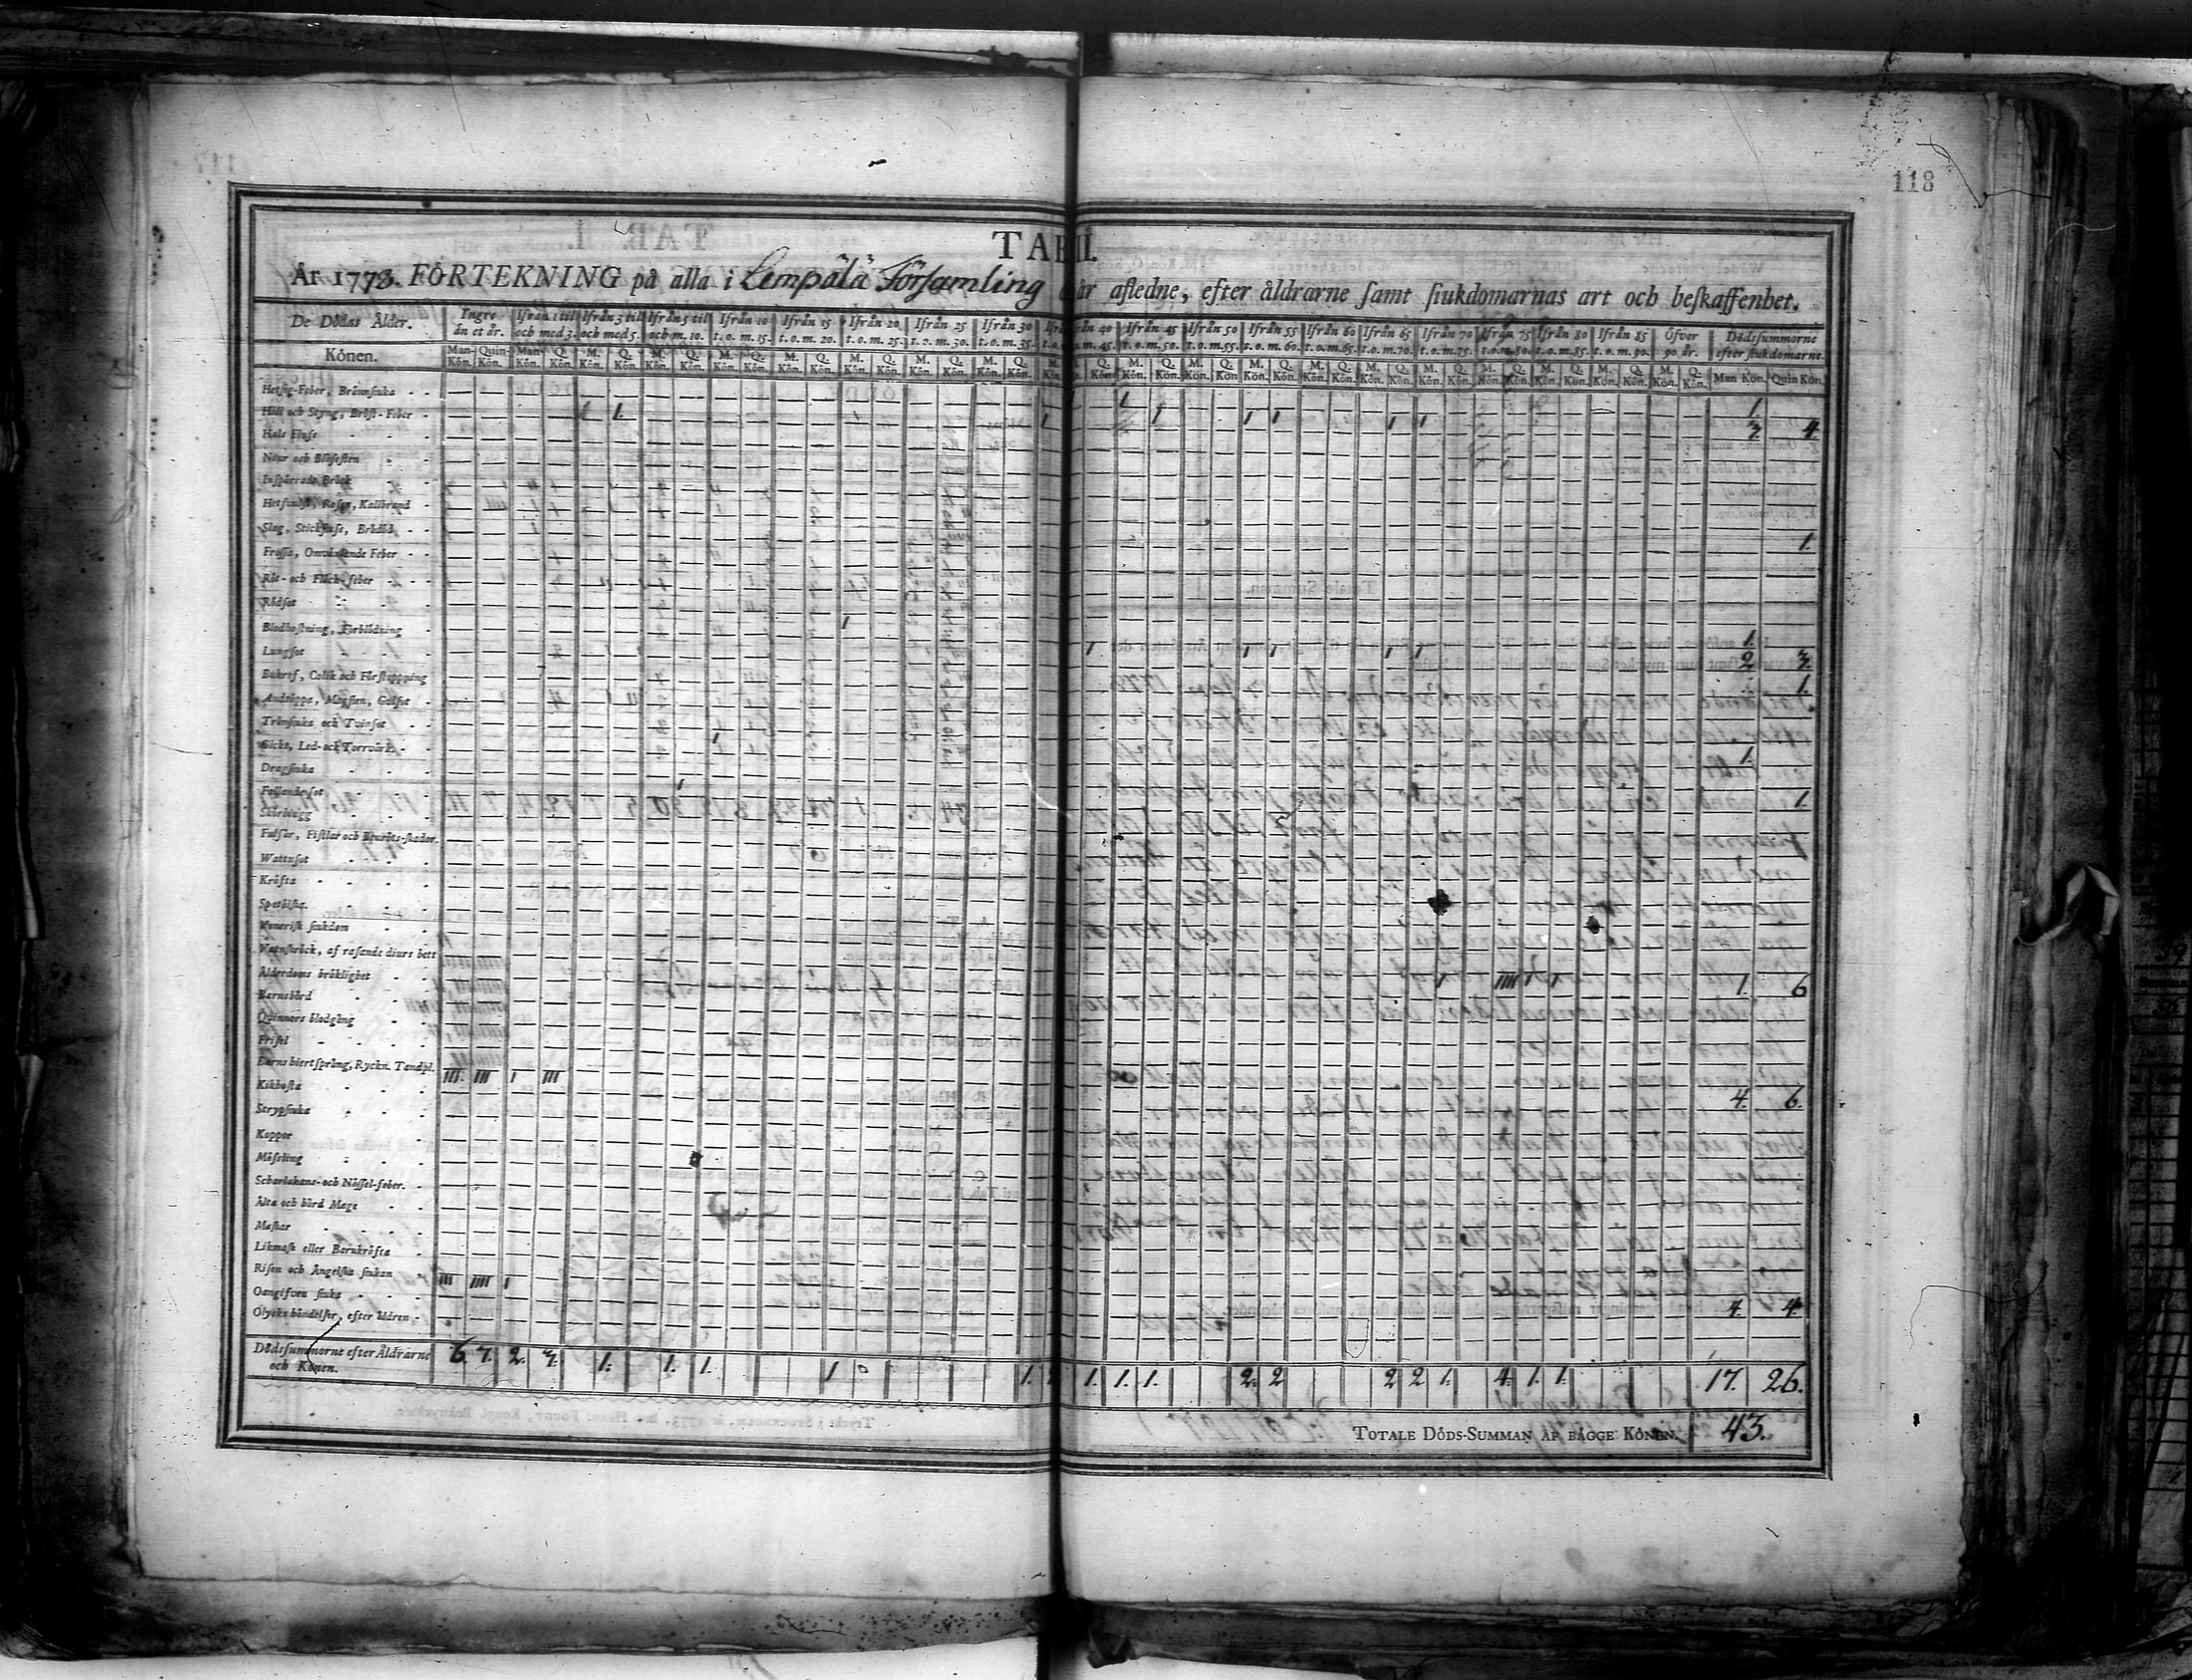 118
TAB. II.
År 1773. FÖRTEKNING på alla i Lempälä Församling afledne, efter åldrarne samt siukdomarnas art och beskaffenhet.
De Dödas Ålder. Yngre än et år. Ifrån 1 til och med 3. Ifrån 3 til och med 5. Ifrån 5 til och m. 10. Ifrån 10 t. o. m. 15. Ifrån 15 t. o. m. 20. Ifrån 20 t. o. m. 25. Ifrån 25 t. o. m. 30. Ifrån 30 t. o. m. 35. Ifrån 40 t. o. m. 45. Ifrån 45 t. o. m. 50. Ifrån 50 t. o. m. 55. Ifrån 55 t. o. m. 60. Ifrån 60 t. o. m. 65. Ifrån 65 t. o. m. 70. Ifrån 70 t. o. m. 75. Ifrån 75 t. o. m. 80. Ifrån 80 t. o. m. 85. Ifrån 85 t. o. m. 90. Öfver 90 år. Dödssummorne efter siukdomarne.
Könen. Man-Kön. Quin-Kön. Man-Kön. Q. Kön. M. Kön. Q. Kön. M. Kön. Q. Kön. M. Kön. Q. Kön. M. Kön. Q. Kön. M. Kön. Q. Kön. M. Kön. Q. Kön. M. Kön. Q. Kön. Man Kön. Quin Kön.
Hetsig-Feber, Brännsiuka 1 1.
Håll och Styng, Bröst-Feber 1 1. 1 1 1 1 1 1 1 3. 4.
Hals Flus
Niur och Blåsesten
Inspärrade Bråck
Hetsvulst, Rosen, Kallbrand
Slag, Stickfluss, Brådöd 1.
Frossa, Omväxlande Feber
Röt- och Fläck-feber
Rödsot
Blodhostning, Förblödning 1 1.
Lungsot 1 1 1 1 1 2 3.
Bukref, Colik och Förstoppning 1.
Andtäppa, Magsten, Gulsot
Trånsiuka och Tvinsot
Gickt, Led- och Torrvärk 1 1.
Dragsiuka
Fallandesot 1 1.
Skörbiugg
Fulsår, Fistlar och Benröts-skador.
Wattusot
Kräfta
Spetälska.
Venerisk siukdom
Watnskräck, af rasande diurs bett
Ålderdoms bräklighet 1 IIII 1 1 1. 6
Barnsbörd
Quinnors blodgång
Frisel
Barns hiertsprång, Ryckn. Tandpl. III. III 1 III 4. 6.
Kikhosta
Strypsiuka
Koppor
Mässling
Scharlakans- och Nässel-feber.
Älta och hård Mage
Maskar
Likmask eller Barnkräfta
Risen och Ängelska siukan III IIII 1 4. 4.
Oangifven siuka
Olyckshändelser, efter äldren
Dödssummorne efter Åldrarne och Könen. 6. 7. 2. 3. 1. 1. 1. 1 1. 1. 1. 1. 2. 2 2 2 1. 4. 1. 1. 17. 26.
TOTALE DÖDS-SUMMAN AF BÄGGE KÖNEN. 43.